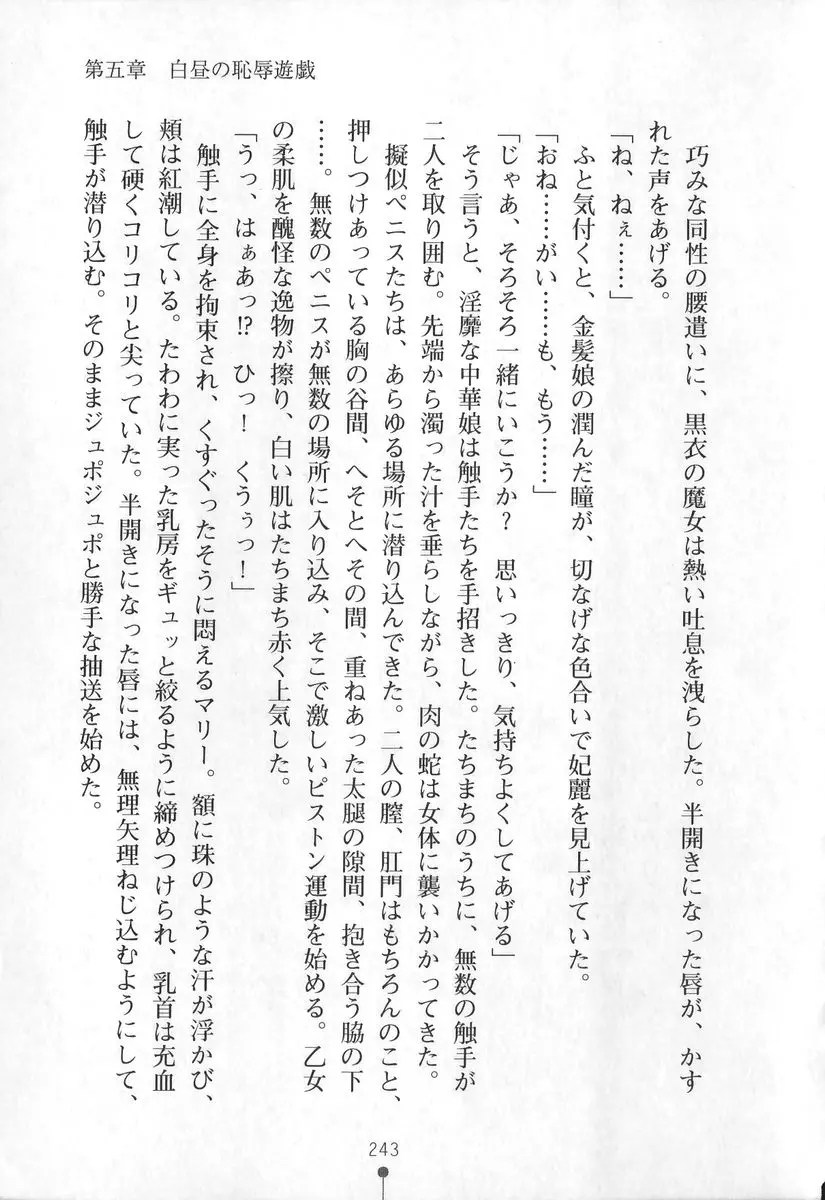 第五章　白昼の恥辱遊戯
　巧みな同性の腰遣いに、黒衣の魔女は熱い吐息を洩らした。半開きになった唇が、かす
れた声をあげる。
「ね、ねぇ……」
　ふと気付くと、金髪娘の潤んだ瞳が、切なげな色合いで妃麗を見上げていた。
「おね……がい……も、もう……」
「じゃあ、そろそろ一緒にいこうか？　思いっきり、気持ちよくしてあげる」
　そう言うと、淫靡な中華娘は触手たちを手招きした。たちまちのうちに、無数の触手が
二人を取り囲む。先端から濁った汁を垂らしながら、肉の蛇は女体に襲いかかってきた。
　擬似ペニスたちは、あらゆる場所に潜り込んできた。二人の膣、肛門はもちろんのこと、
押しつけあっている胸の谷間、へそとへその間、重ねあった太腿の隙間、抱き合う脇の下
……。無数のペニスが無数の場所に入り込み、そこで激しいピストン運動を始める。乙女
の柔肌を醜怪な逸物が擦り、白い肌はたちまち赤く上気した。
「うっ、はぁあっ!?　ひっ！　くうぅっ！」
　触手に全身を拘束され、くすぐったそうに悶えるマリー。額に珠のような汗が浮かび、
頬は紅潮している。たわわに実った乳房をギュッと絞るように締めつけられ、乳首は充血
して硬くコリコリと尖っていた。半開きになった唇には、無理矢理ねじ込むようにして、
触手が潜り込む。そのままジュポジュポと勝手な抽送を始めた。
243